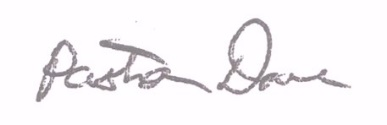 Pastor Dave